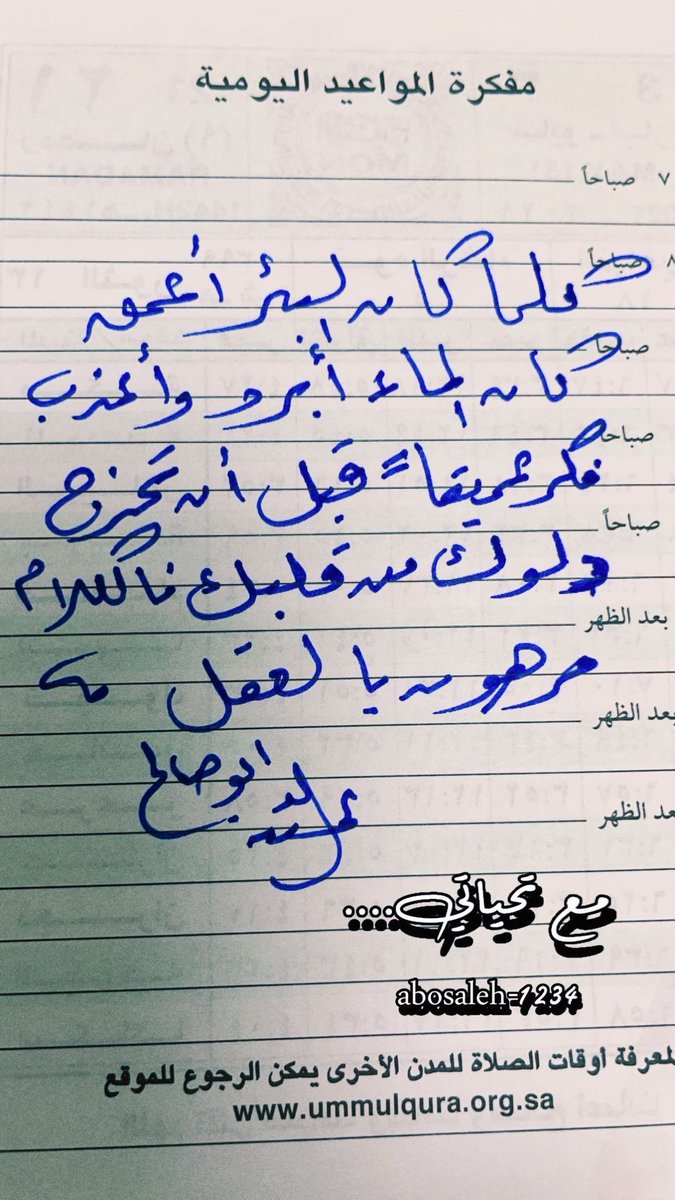 مفكرة المواعيد اليومية
٧ صباحاً
٨ صباحاً
كلما كان البئر أعمق
صباحاً
كان الماء أبرد وأعذب
صباحاً
فكر عميقاً قبل أن تخرج
صباحاً
دلوك من قلبك فالكلام
بعد الظهر
مرهون بالعقل
بعد الظهر
ابو صالح
بعد الظهر
مع تحياتي....
abosaleh-1234
لمعرفة أوقات الصلاة للمدن الأخرى يمكن الرجوع للموقع
www.ummulqura.org.sa